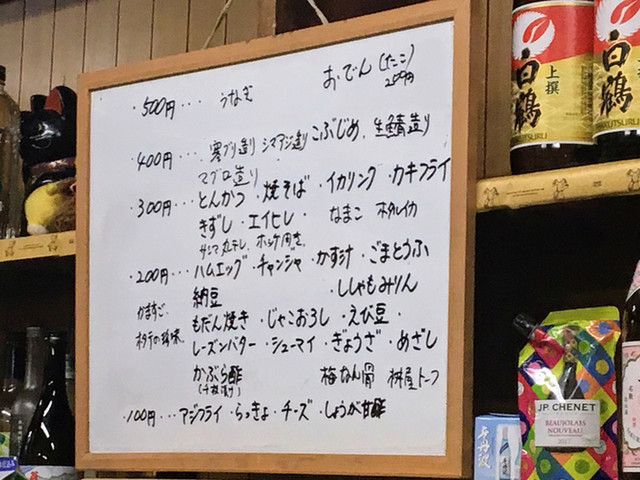 ・500円・・・ うなぎ おでん(たこ)
200円
・400円・・・ 寒ブリ造り シマアジ造り こぶじめ、生鯖造り
マグロ造り
・300円・・・ とんかつ・焼そば・イカリング・カキフライ
きずし・エイヒレ・ なまこ ホタルイカ
サンマ丸干し、ホッケ開き
・200円・・・ ハムエッグ・チャンジャ・かす汁・ごまとうふ
かますご 納豆 ・ししゃもみりん
ホタテの珍味 もだん焼き・じゃこおろし・えび豆・
レーズンバター・シューマイ・ぎょうざ・めざし
かぶら酢 梅なん骨 桝屋トーフ
(千枚漬け)
・100円・・・ アジフライ・らっきょ・チーズ・しょうが甘酢
上撰
白鶴
白鶴
HAKUTSURU
JP. CHENET
BEAUJOLAIS
NOUVEAU